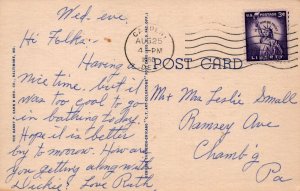 Wed. eve.
Hi Folks.
Having a
nice time, but it
was too cool to go
in bathing today.
Hope it is better
by to morow. How are
you getting along with
Duckie? Love Ruth
AUG 26
PM
U.S. POSTAGE 3¢
LIBERTY
POST CARD
Mr + Mrs Leslie Small
Ramsey Ave
Chamb'g
Pa